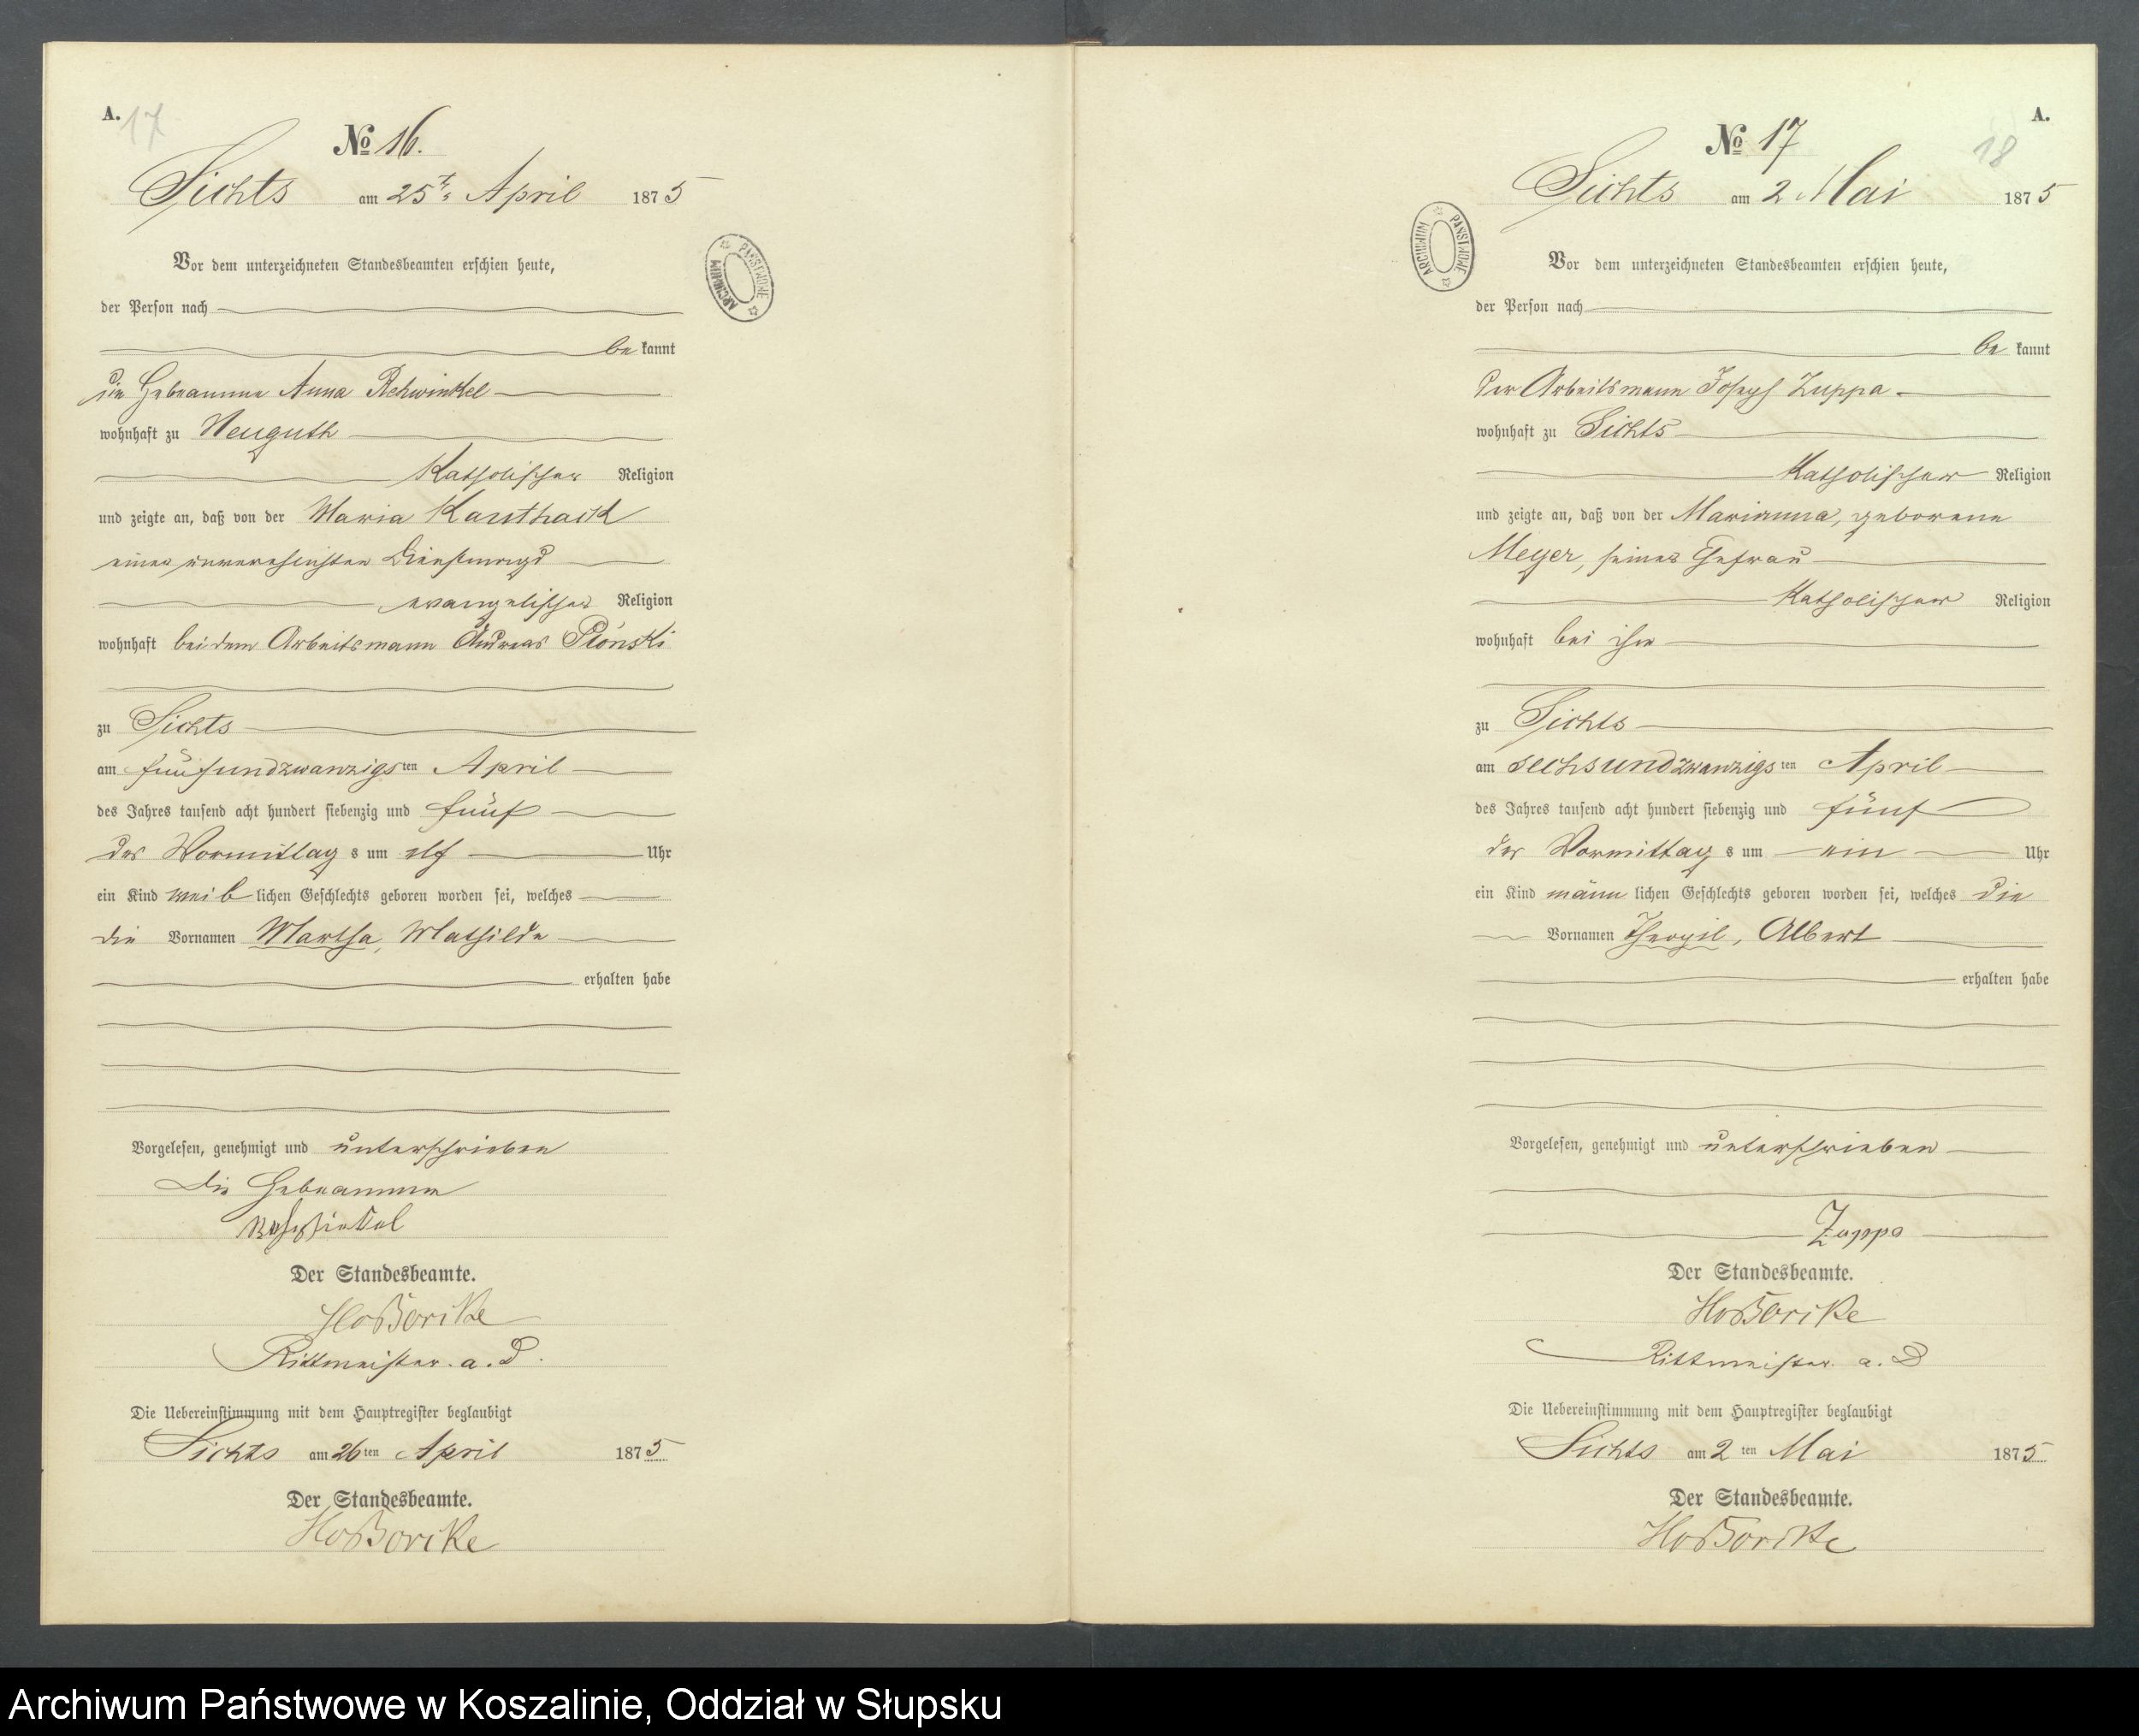 A.
17
No 16.
Sichts am 25ten April 1875
Vor dem unterzeichneten Standesbeamten erschien heute,
der Person nach
be kannt
die Hebeamme Anna Rehwinkel
wohnhaft zu Neuguth
Katholischer Religion
und zeigte an, daß von der Maria
einer unverehelichten Dienstmagd
evangelischer Religion
wohnhaft bei dem Arbeitsmann Andreas Płónski
zu Sichts
am fünfundzwanzigsten April
des Jahres tausend acht hundert siebenzig und fünf
des Vormittags um elf Uhr
ein Kind weiblichen Geschlechts geboren worden sei, welches
die Vornamen Martha, Mathilde
erhalten habe
Vorgelesen, genehmigt und unterschrieben
die Hebeamme
Der Standesbeamte.
Rittmeister a. D.
Die Uebereinstimmung mit dem Hauptregister beglaubigt
Sichts am 26ten April 1875
Der Standesbeamte.
ARCHIWUM PAŃSTWOWE
A.
18
No 17
Sichts am 2 Mai 1875
Vor dem unterzeichneten Standesbeamten erschien heute,
der Person nach
be kannt
der Arbeitsmann Joseph Zuppa
wohnhaft zu Sichts
Katholischer Religion
und zeigte an, daß von der Marianna, geborene
Meyer, seiner Ehefrau
Katholischer Religion
wohnhaft bei ihm
zu Sichts
am sechsundzwanzigsten April
des Jahres tausend acht hundert siebenzig und fünf
des Vormittags um ein Uhr
ein Kind männlichen Geschlechts geboren worden sei, welches die
Vornamen Albert
erhalten habe
Vorgelesen, genehmigt und unterschrieben
Zuppa
Der Standesbeamte.
Rittmeister a. D
Die Uebereinstimmung mit dem Hauptregister beglaubigt
Sichts am 2ten Mai 1875
Der Standesbeamte.
ARCHIWUM PAŃSTWOWE
Archiwum Państwowe w Koszalinie, Oddział w Słupsku